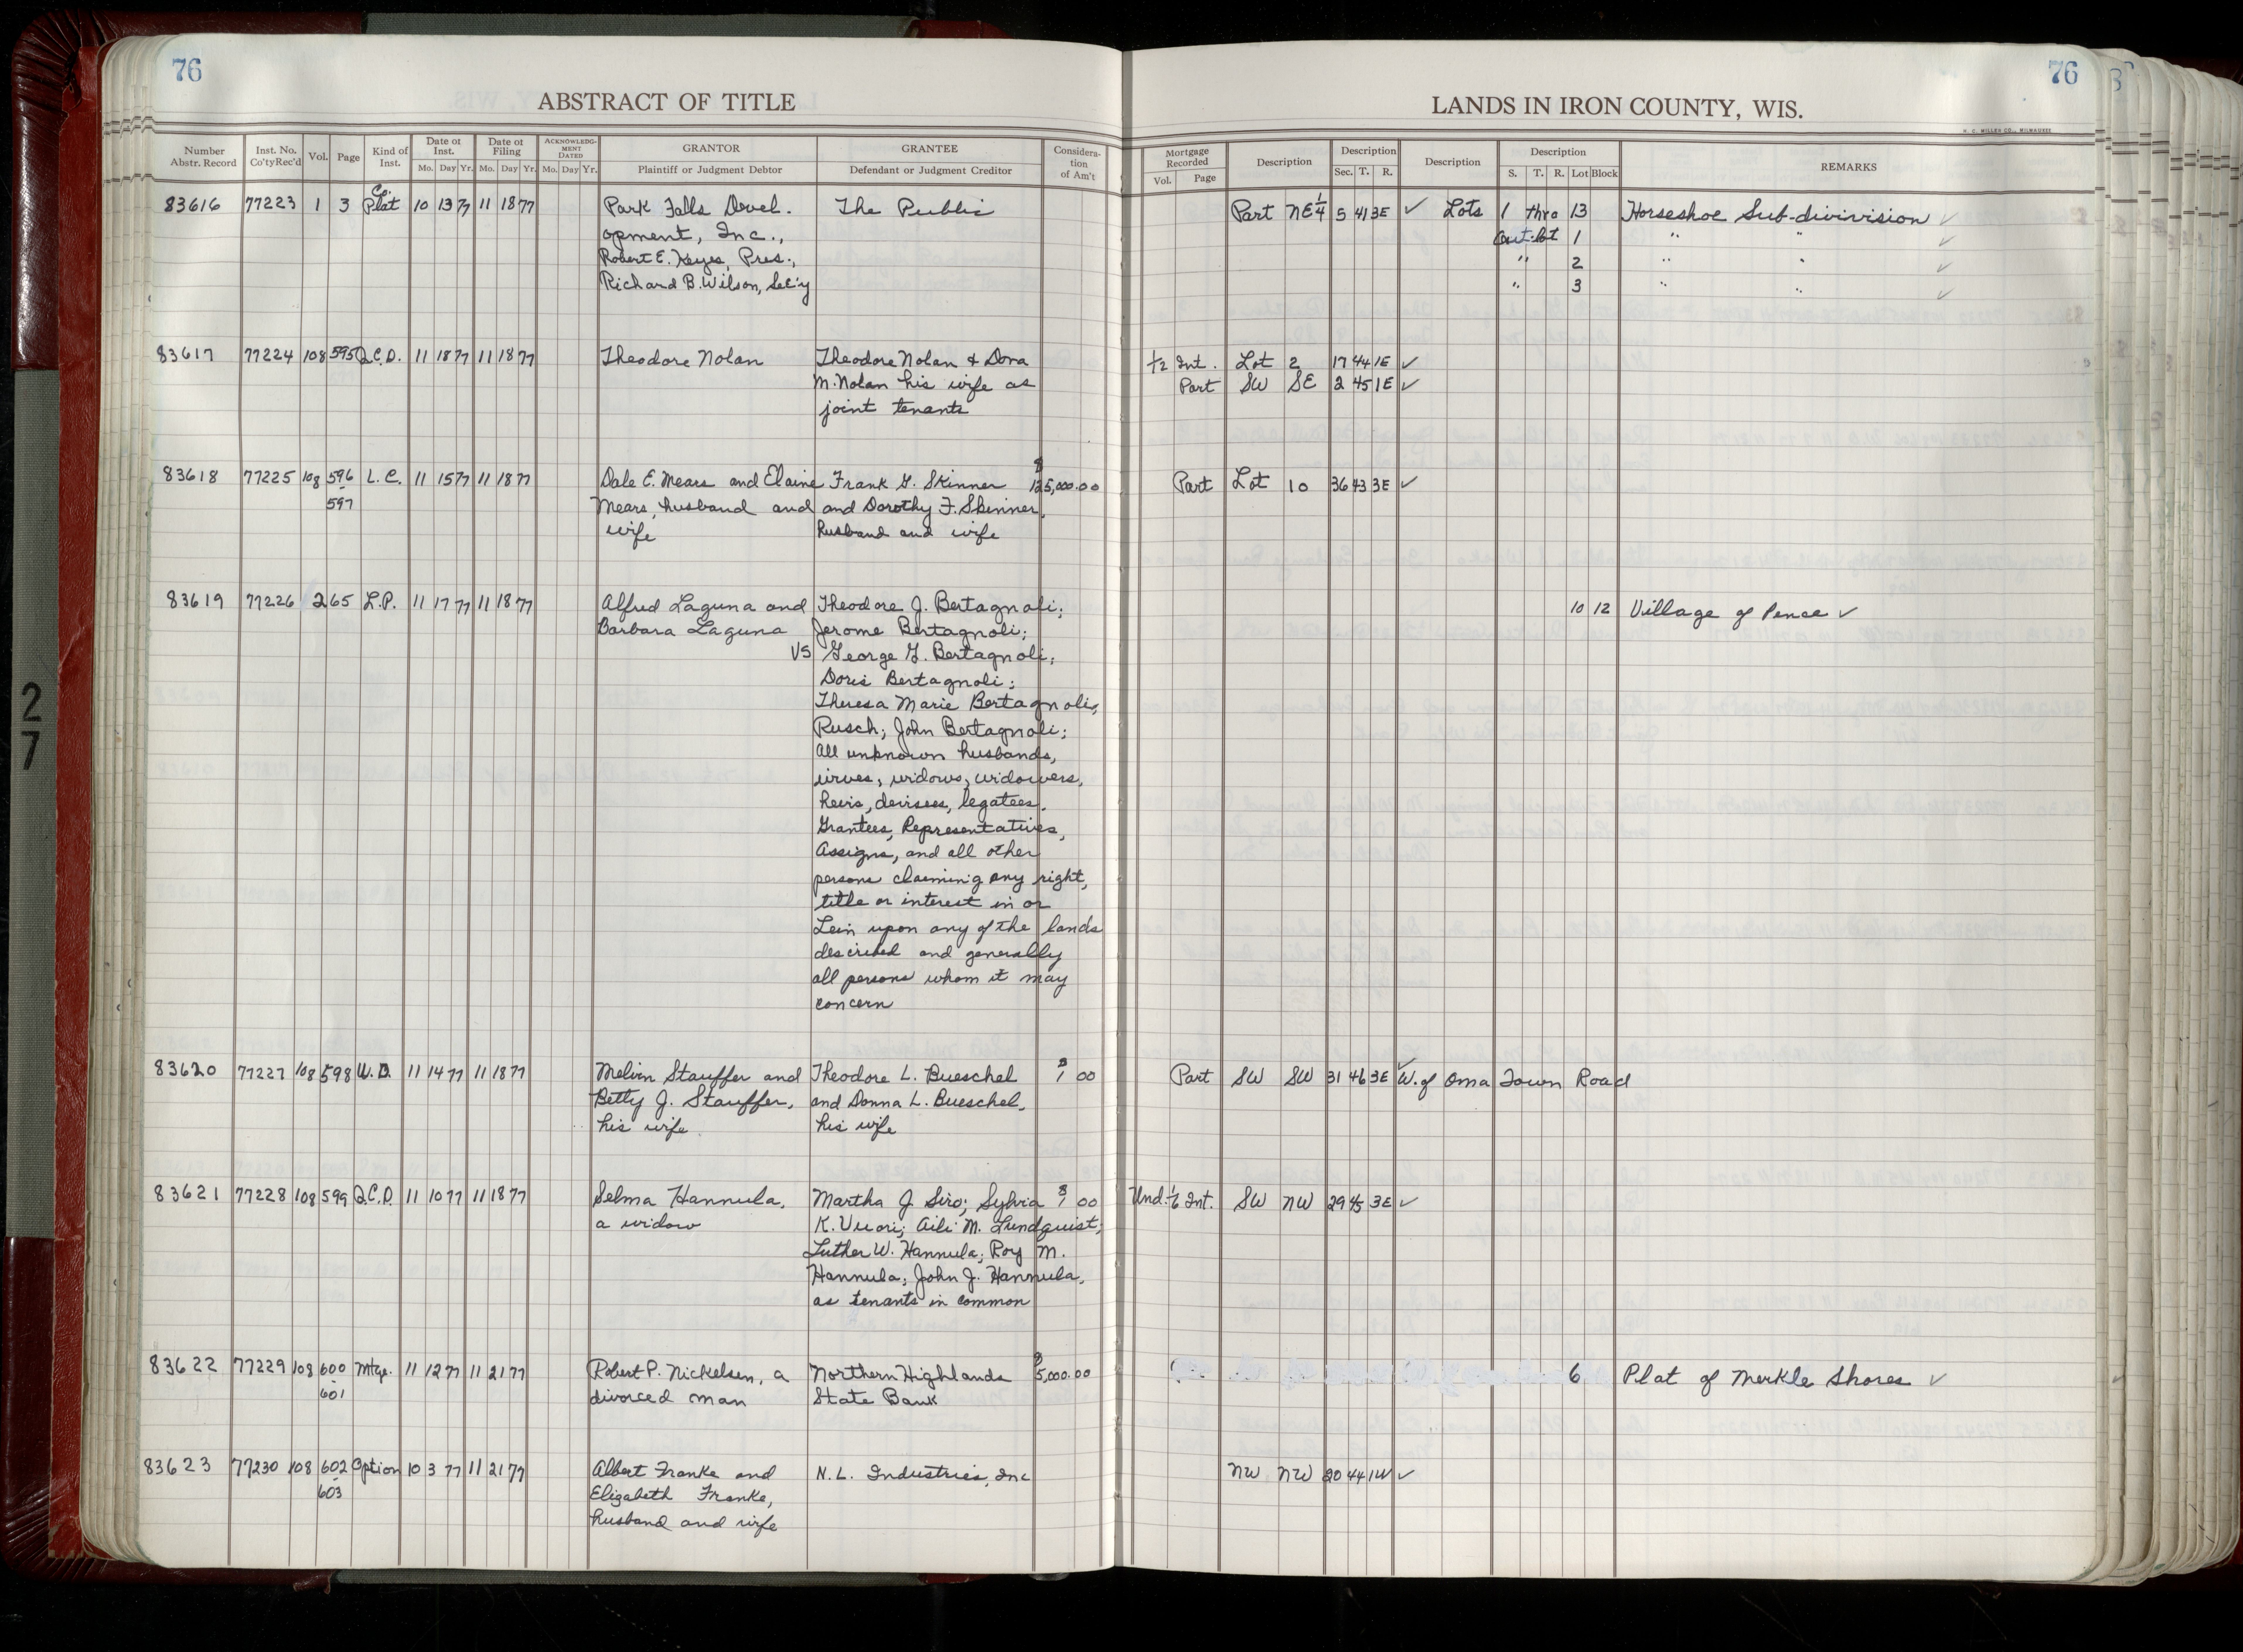 76
76
ABSTRACT OF TITLE
LANDS IN IRON COUNTY, WIS.
H. C. MILLER CO., MILWAUKEE
Number Abstr. Record Inst. No. Co'tyRec'd Vol. Page Kind of Inst. Date of Inst. Mo. Day Yr. Date of Filing Mo. Day Yr. ACKNOWLEDGMENT DATED Mo. Day Yr. GRANTOR Plaintiff or Judgment Debtor GRANTEE Defendant or Judgment Creditor Consideration of Am't Mortgage Recorded Vol. Page Description Description Sec. T. R. Description Description S. T. R. Lot Block REMARKS
83616 77223 1 3 Co. Plat 10 13 77 11 18 77 Park Falls Devel. The Public Part NE 1/4 5 41 3E ✓ Lots 1 thro 13 Horseshoe Sub-divivision ✓
opment, Inc., Out-lot 1 " " ✓
Robert E. Keyes, Pres., " 2 " " ✓
Richard B. Wilson, Sec'y " 3 " " ✓
83617 77224 108 595 Q.C.D. 11 18 77 11 18 77 Theodore Nolan Theodore Nolan & Dora 1/2 Int. Lot 2 17 44 1E ✓
M. Nolan his wife as Part SW SE 2 45 1E ✓
joint tenants
83618 77225 108 596 L.C. 11 15 77 11 18 77 Dale E. Mears and Elaine Frank G. Skinner $ 125,000.00 Part Lot 10 36 43 3E ✓
- 597 Mears, husband and and Dorothy F. Skinner,
wife husband and wife
83619 77226 2 65 L.P. 11 17 77 11 18 77 Alfred Laguna and Theodore J. Bertagnoli; 10 12 Village of Pence ✓
Barbara Laguna Jerome Bertagnoli;
VS George G. Bertagnoli;
Doris Bertagnoli;
Theresa Marie Bertagnoli,
Rusch; John Bertagnoli;
All unknown husbands,
wives, widows, widowers,
heirs, devisees, legatees,
Grantees, Representatives,
Assigns, and all other
persons claiming any right,
title or interest in or
Lein upon any of the lands
described and generally
all persons whom it may
concern
83620 77227 108 598 W.D. 11 14 77 11 18 77 Melvin Stauffer and Theodore L. Bueschel $ 1 00 Part SW SW 31 46 3E ✓ W. of Oma Town Road
Betty J. Stauffer, and Donna L. Bueschel,
his wife his wife
83621 77228 108 599 Q.C.D. 11 10 77 11 18 77 Selma Hannula, Martha J. Siro; Sylvia $ 1 00 Und. 1/6 Int. SW NW 29 45 3E ✓
a widow K. Vuori; Aili M. Lundquist;
Luther W. Hannula; Roy M.
Hannula; John J. Hannula,
as tenants in common
83622 77229 108 600 Mtge. 11 12 77 11 21 77 Robert P. Nickelsen, a Northern Highlands $ 5,000.00 6 Plat of Merkle Shores ✓
- 601 divorced man State Bank
83623 77230 108 602 Option 10 3 77 11 21 77 Albert Franke and N.L. Industries, Inc NW NW 20 44 1W ✓
- 603 Elizabeth Franke,
husband and wife
27